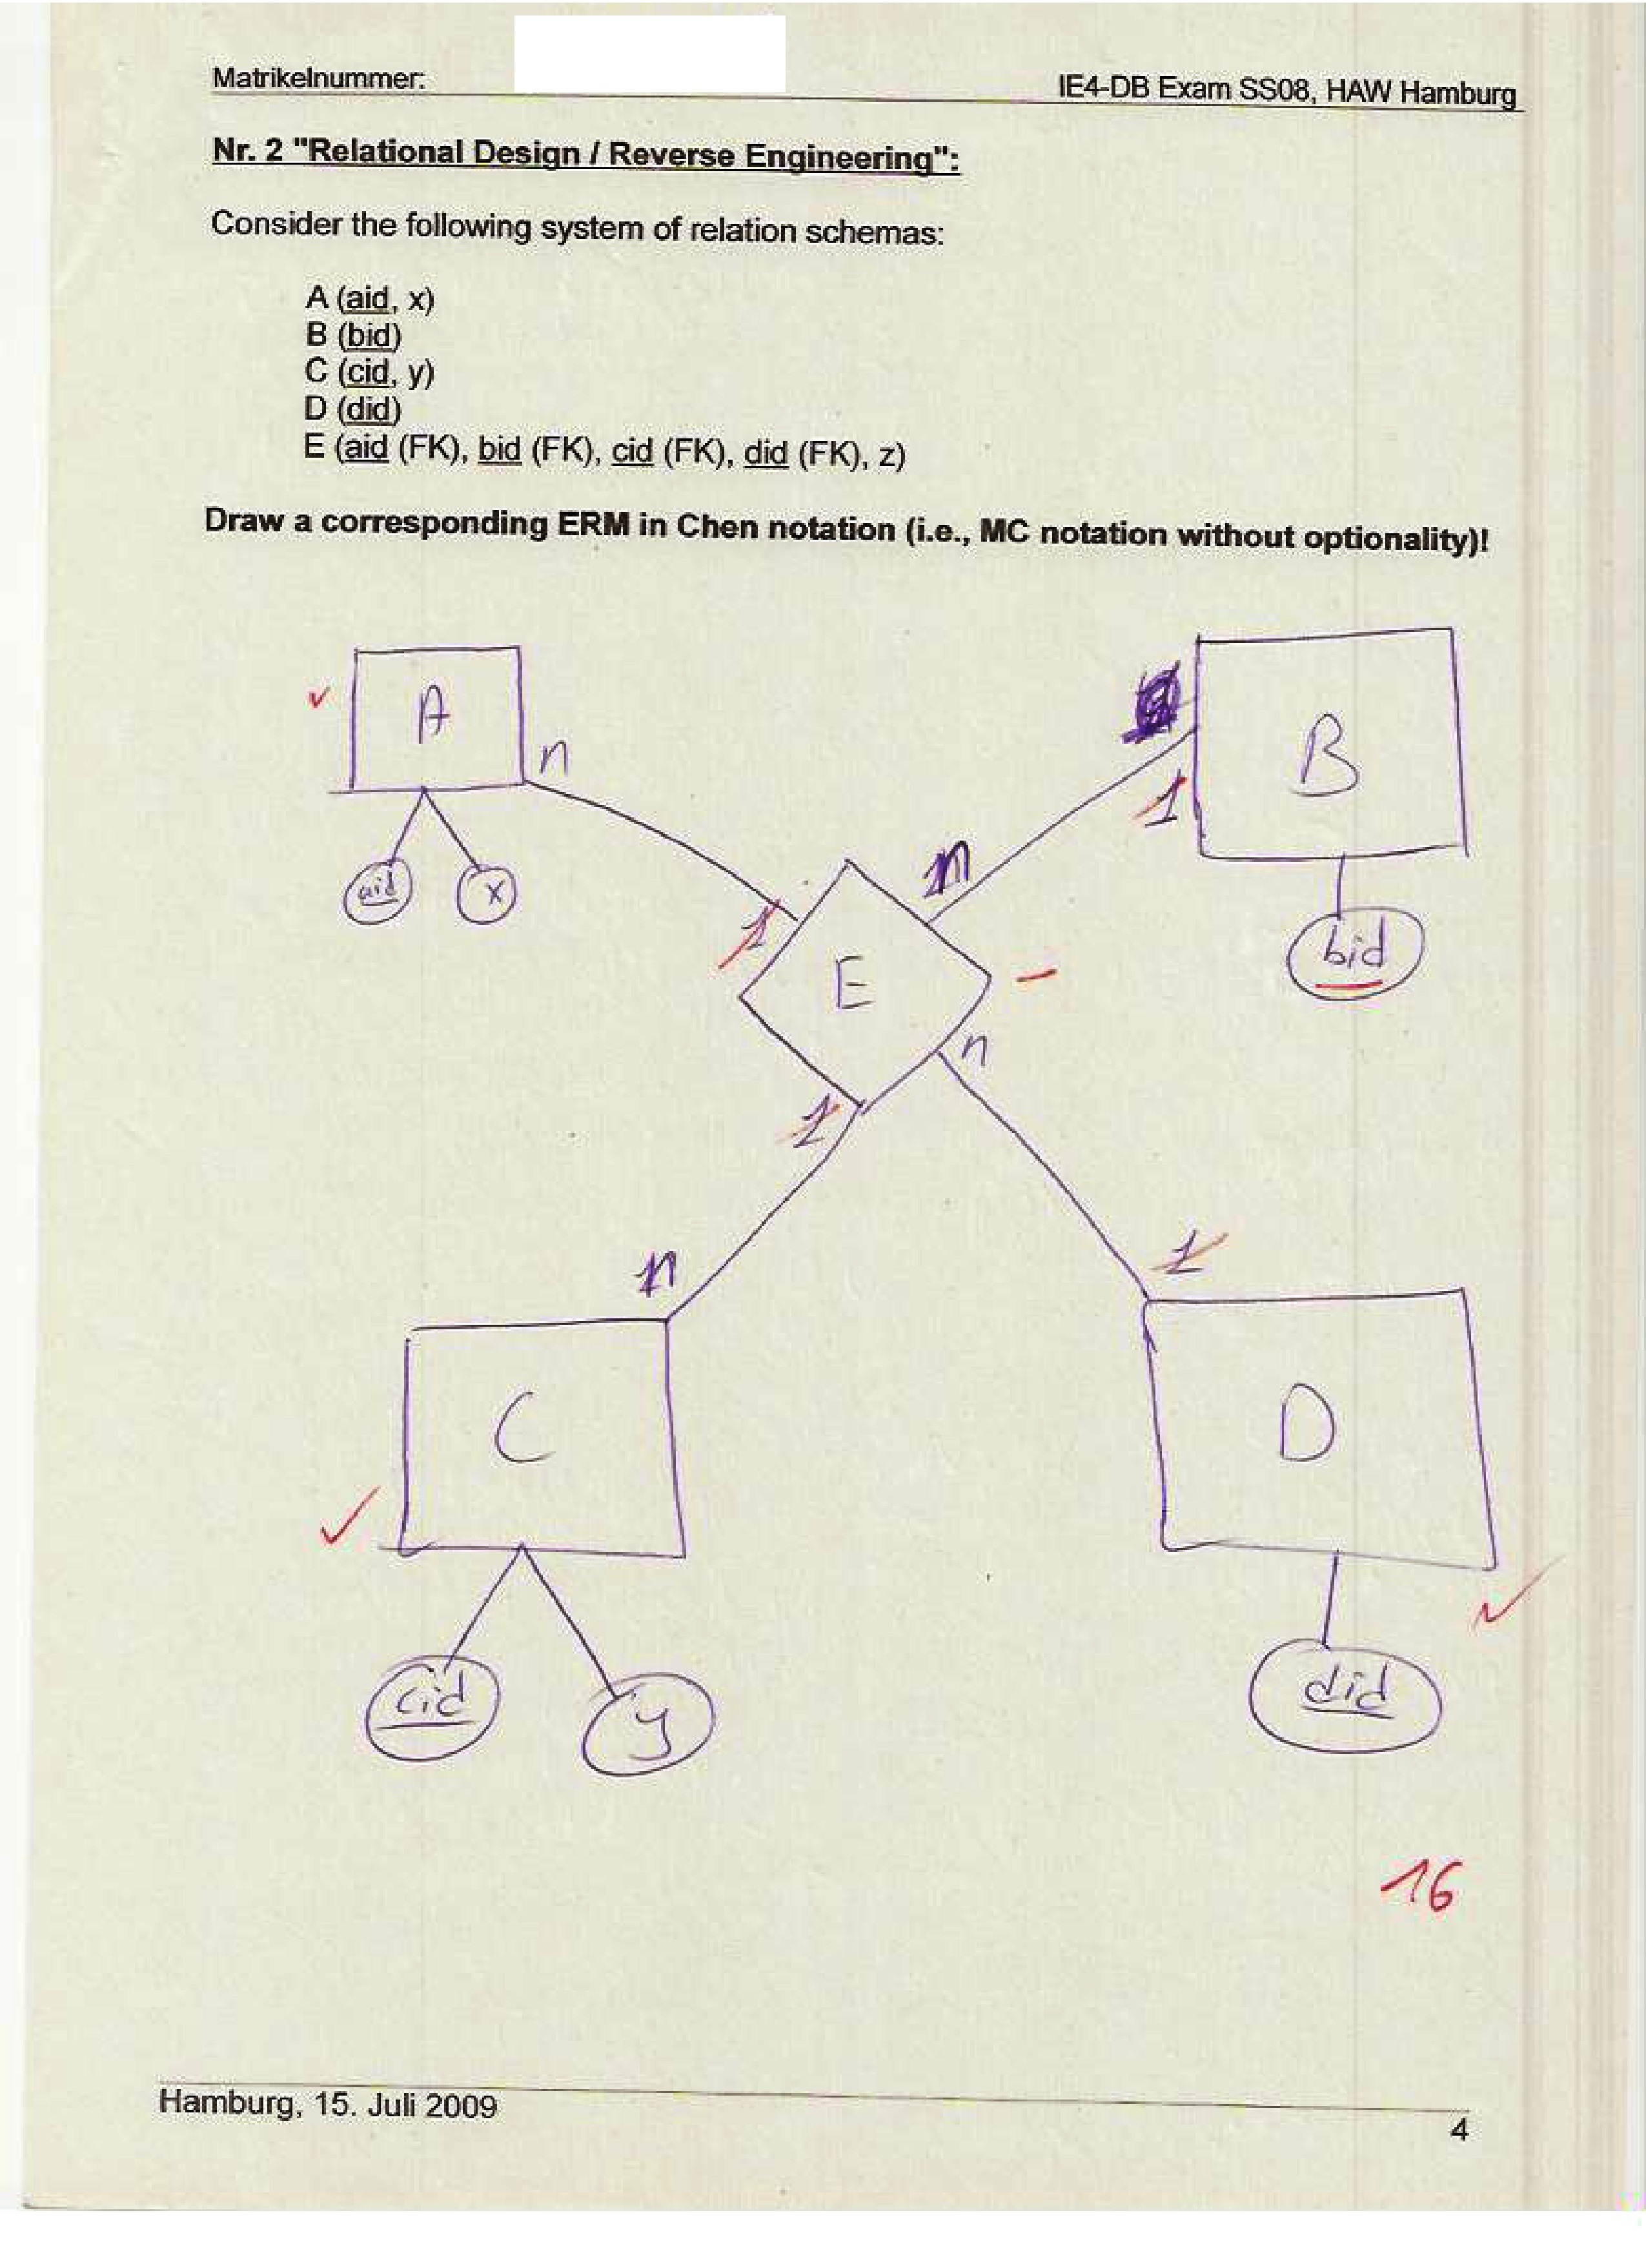 Matrikelnummer:
IE4-DB Exam SS08, HAW Hamburg
Nr. 2 "Relational Design / Reverse Engineering":
Consider the following system of relation schemas:
A (aid, x)
B (bid)
C (cid, y)
D (did)
E (aid (FK), bid (FK), cid (FK), did (FK), z)
Draw a corresponding ERM in Chen notation (i.e., MC notation without optionality)!
A
B
n
1
aid
x
n
bid
1
E
n
1
n
1
C
D
cid
y
did
16
Hamburg, 15. Juli 2009
4